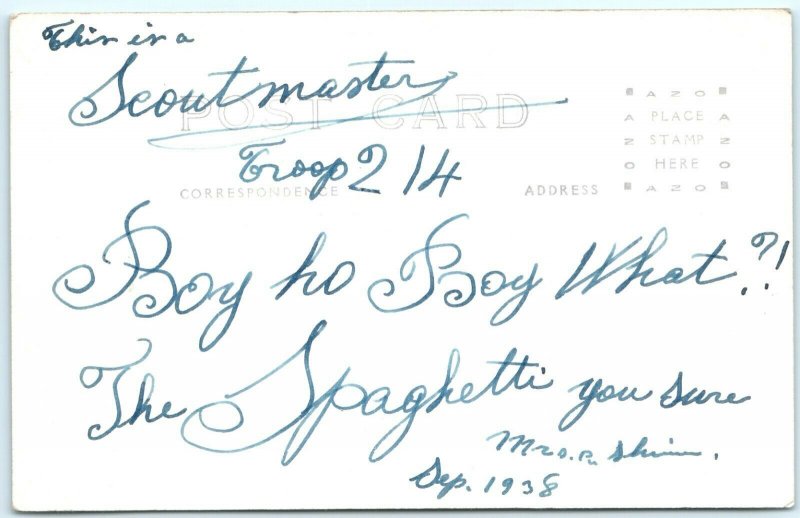 This is a
Scoutmaster
POST CARD
Troop 214
CORRESPONDENCE
ADDRESS
AZO
A PLACE A
Z STAMP Z
O HERE O
AZO
Boy ho Boy What?!
The Spaghetti you sure
Mrs.
Sep. 1938